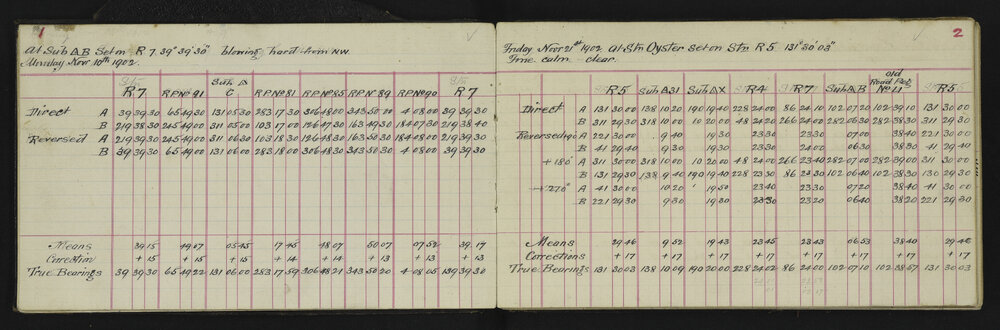 1
At Sub Δ B Set on R 7 39° 39' 30" blowing hard from N.W.
Monday Novr 10th 1902.
R7 RPNo 91 Sub Δ C RPNo 81 RPNo 85 RPNo 89 RPNo 90 R7
Direct A 39 39 30 65 49 30 131 05 30 283 17 30 306 48 00 343 50 00 4 08 00 39 39 30
B 219 38 30 245 49 00 311 05 00 103 17 00 126 47 30 163 49 30 184 07 30 219 38 40
Reversed A 219 39 30 245 49 00 311 06 30 103 18 30 126 48 30 163 50 30 184 08 00 219 39 30
B 39 39 30 65 49 00 131 06 00 283 18 00 306 48 30 343 50 30 4 08 00 39 39 30
Means 39 15 49 07 05 45 17 45 48 07 50 07 07 52 39 17
Correction + 15 + 15 + 15 + 14 + 14 + 13 + 13 + 13
True Bearings 39 39 30 65 49 22 131 06 00 283 17 59 306 48 21 343 50 20 4 08 05 39 39 30
2
Friday Novr 21st 1902 At Stn Oyster Set on Stn R 5 131° 30' 03"
Fine calm clear.
R5 Sub Δ 31 Sub Δ X R4 R7 Sub Δ B old Road Peg No 11 R5
Direct A 131 30 00 138 10 20 190 19 40 228 24 00 86 24 10 102 07 20 102 39 10 131 30 00
B 311 29 30 318 10 00 10 20 00 48 24 20 266 24 00 282 06 30 282 38 30 311 29 30
Reversed 90 A 221 30 00 9 40 19 30 23 30 23 30 07 00 38 40 221 30 00
B 41 29 40 9 30 19 30 23 30 24 00 06 30 38 30 41 29 40
+ 180° A 311 30 00 318 10 00 10 20 00 48 24 00 266 23 40 282 07 00 282 39 00 311 30 00
B 131 29 30 138 9 40 190 19 40 228 23 30 86 23 30 102 06 40 102 38 30 130 29 30
+ 270° A 41 30 00 10 20 19 50 23 40 23 20 07 20 38 40 41 30 00
B 221 29 30 9 30 19 30 23 30 23 20 06 40 38 20 221 29 30
Means 29 46 9 52 19 43 23 45 23 43 06 53 38 40 29 46
Corrections + 17 + 17 + 17 + 17 + 17 + 17 + 17 + 17
True Bearings 131 30 03 138 10 09 190 20 00 228 24 02 86 24 00 102 07 10 102 38 57 131 30 03